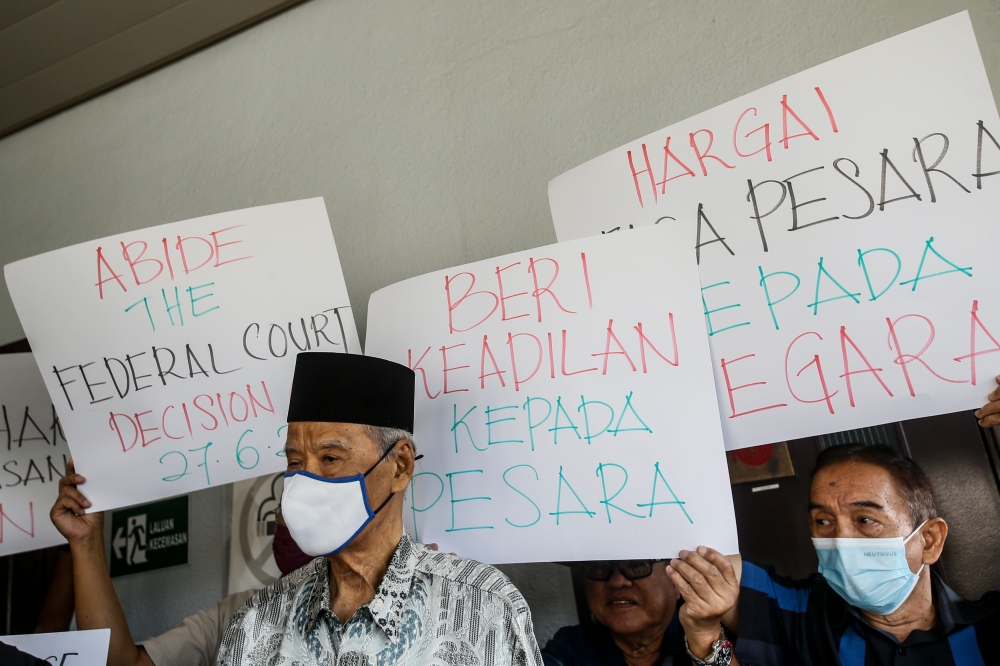 ABIDE
THE
FEDERAL COURT
DECISION
27.6.2
BERI
KEADILAN
KEPADA
PESARA
HARGAI
PESARA
EPADA
EGARA
HAK
ASAN
N
LALUAN
KECEMASAN
NEUTROVIS
SE